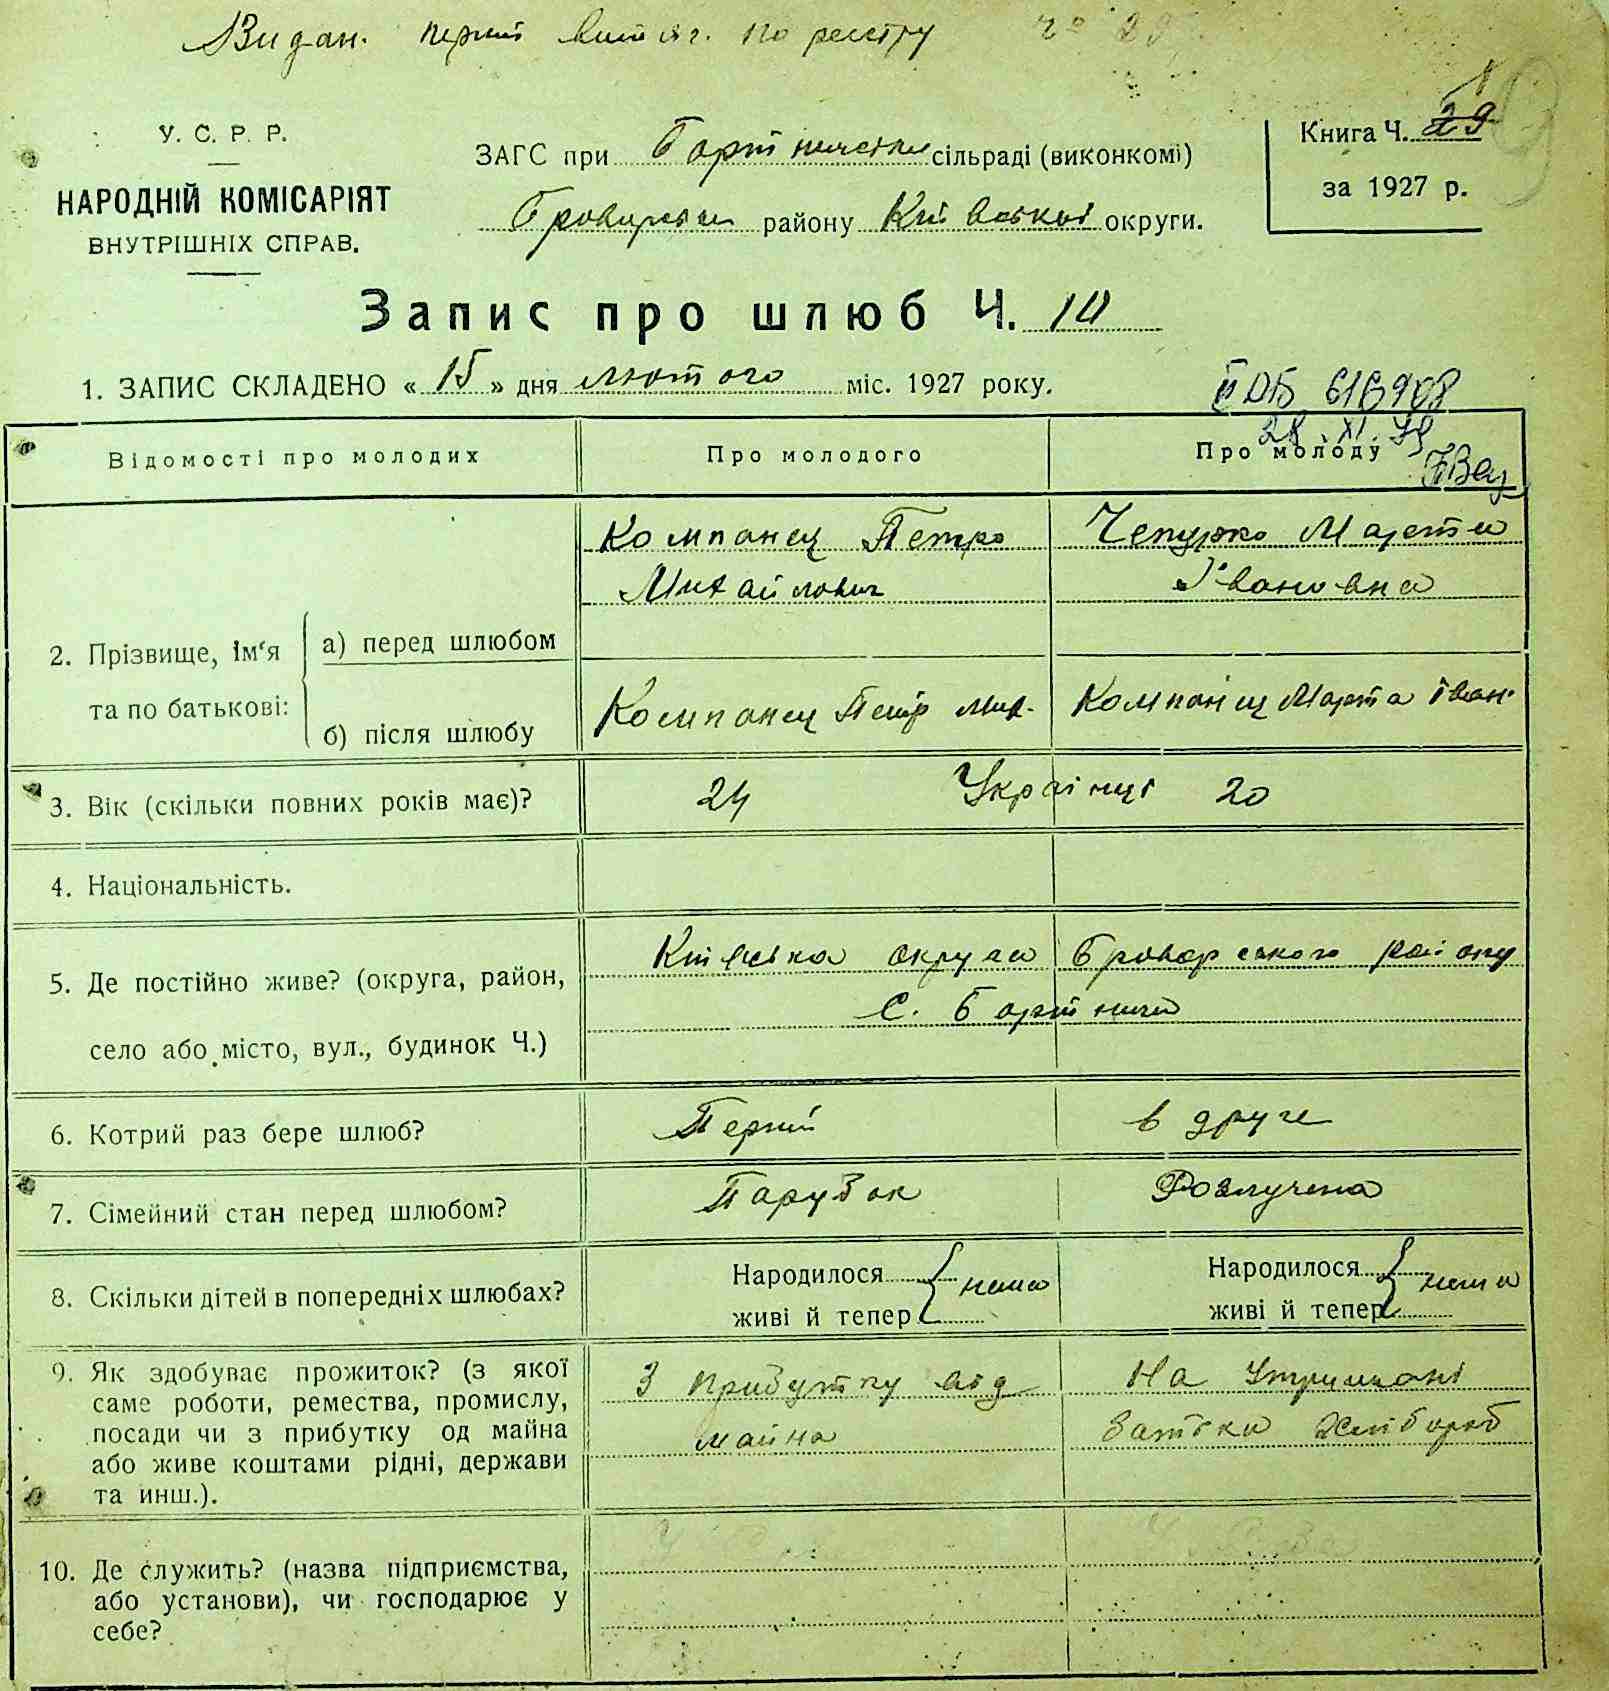 Видан. перший витяг. по реєстру
У. С. Р. Р.
НАРОДНІЙ КОМІСАРІЯТ
ВНУТРІШНІХ СПРАВ.
ЗАГС при Бортническ сільраді (виконкомі)
району Київської округи.
Книга Ч. 29
за 1927 р.
Запис про шлюб Ч. 10
1. ЗАПИС СКЛАДЕНО « 15 » дня лютого міс. 1927 року.
616908
28. XI. 79
Відомості про молодих
Про молодого
Про молоду
2. Прізвище, ім'я та по батькові:
а) перед шлюбом
Компанец Петро
Михайлович
Марта
Івановна
б) після шлюбу
Компанец Петр Мих.
Компанец Марта Іван.
3. Вік (скільки повних років має)?
24 Українці 20
4. Національність.
5. Де постійно живе? (округа, район,
село або місто, вул., будинок Ч.)
Київська округа Броварського району
с. Бортничи
6. Котрий раз бере шлюб?
Перший
в друге
7. Сімейний стан перед шлюбом?
Парубок
Розлучена
8. Скільки дітей в попередніх шлюбах?
Народилося
живі й тепер
нема
Народилося
живі й тепер
нема
9. Як здобуває прожиток? (з якої
саме роботи, ремества, промислу,
посади чи з прибутку од майна
або живе коштами рідні, держави
та инш.).
З прибутку від
майна
На утримані
батька хлібороб
10. Де служить? (назва підприємства,
або установи), чи господарює у
себе?